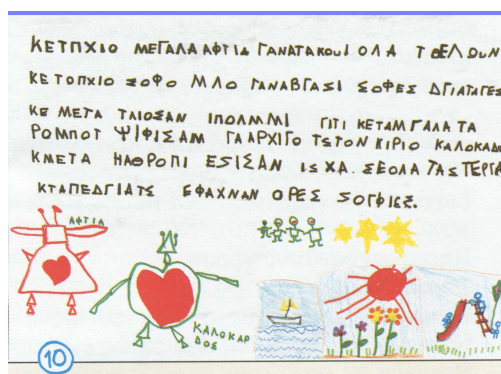 ΚΕΤΠΧΙΟ ΜΕΓΑΛΑ ΑΦΤΙΑ ΓΑΝΑΤΑΚΟΥΙ ΟΛΑ ΤΘΕΛΟΥΝ
ΚΕ ΤΟΠΧΙΟ ΣΟΦΟ ΜΛΟ ΓΑΝΑΒΓΑΣΙ ΣΟΦΕΣ ΔΓΙΑΤΑΓΕΣ
ΚΕ ΜΕΤΑ ΤΛΙΟΣΑΝ ΙΠΟΛΜΜΙ ΓΙΤΙ ΚΕΤΑΜΓΑΛΑ ΤΑ
ΡΟΜΠΟΤ ΨΙΦΙΣΑΜ ΓΑΑΡΧΙΓΟ ΤΣΤΟΝ ΚΙΡΙΟ ΚΑΛΟΚΑΔ
ΚΜΕΤΑ ΗΑΘΡΟΠΙ ΕΣΙΣΑΝ ΙΣ ΧΑ. ΣΕΟΛΑ ΤΑΣΤΕΡΓΑ
ΚΤΑΠΕΔΓΙΑΤΣ ΕΦΑΧΝΑΝ ΟΡΕΣ ΣΟΓΦΙΕΣ.
ΑΦΤΙΑ
ΚΑΛΟΚΑΡ
ΔΟΣ
10